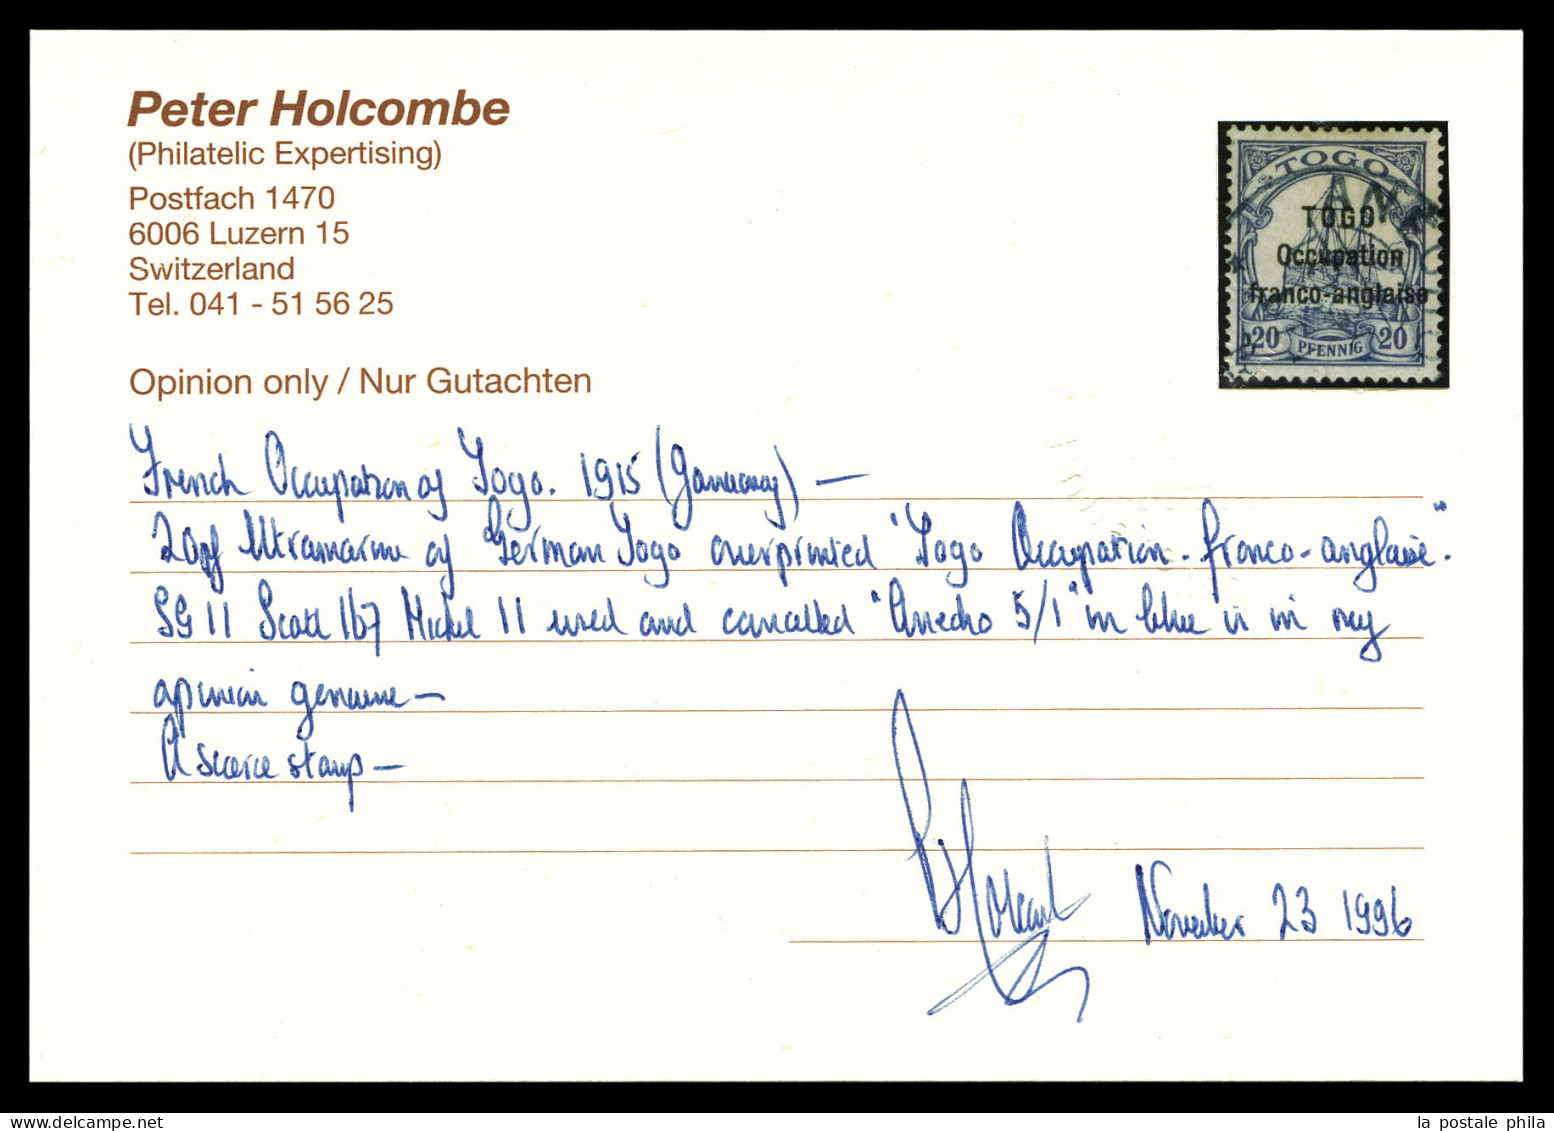 Peter Holcombe
(Philatelic Expertising)
Postfach 1470
6006 Luzern 15
Switzerland
Tel. 041 - 51 56 25
Opinion only / Nur Gutachten
TOGO
TOGO
Occupation
franco-anglaise
20 PFENNIG 20
French Occupation of Togo. 1915 (January) —
20pf Ultramarine of German Togo overprinted "Togo Occupation - franco-anglaise".
SG 11 Scott 167 Michel 11 used and cancelled "Anecho 5/1" in blue is in my
opinion genuine —
A scarce stamp —
November 23 1996
www.delcampe.net
la postale phila